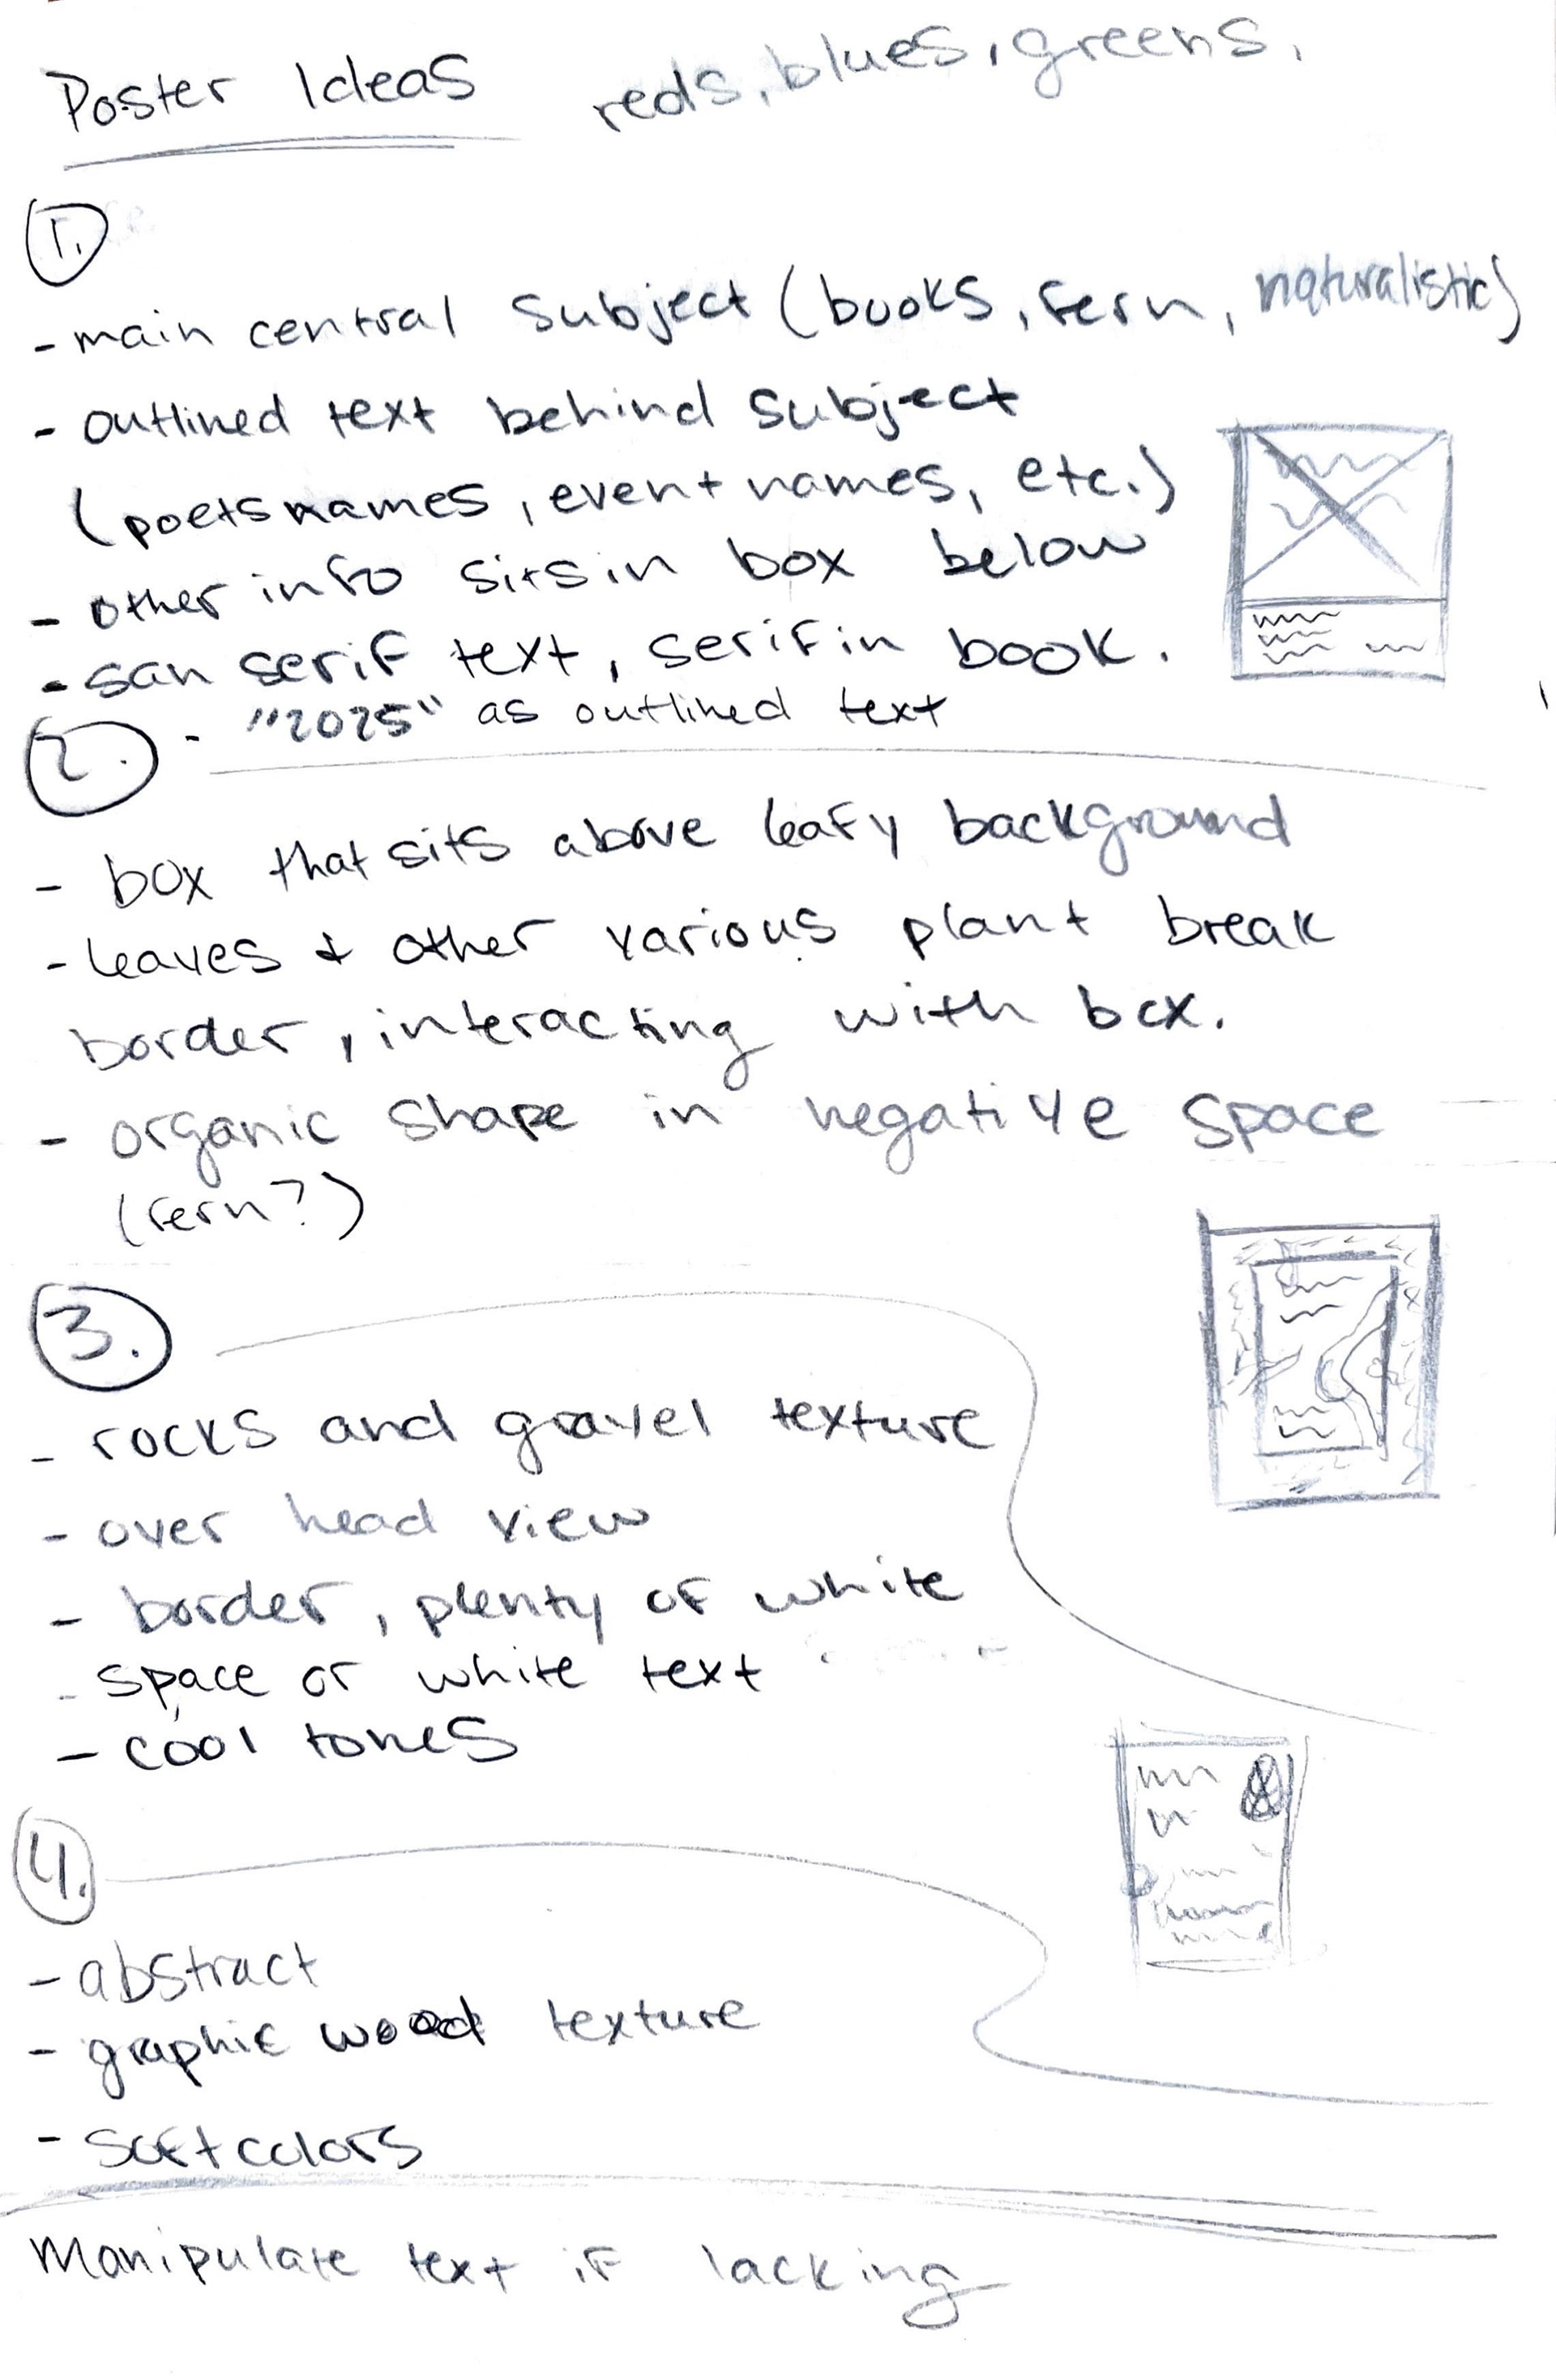 Poster Ideas reds, blues, greens,
1.
- main central subject (books, fern, naturalistic)
- outlined text behind subject
(poets names, event names, etc.)
- other info sits in box below
- san serif text, serif in book.
- "2025" as outlined text
2.
- box that sits above leafy background
- leaves & other various plant break
border, interacting with box.
- organic shape in negative space
(fern?)
3.
- rocks and gravel texture
- over head view
- border, plenty of white
- space or white text
- cool tones
4.
- abstract
- graphic wood texture
- soft colors
Manipulate text if lacking